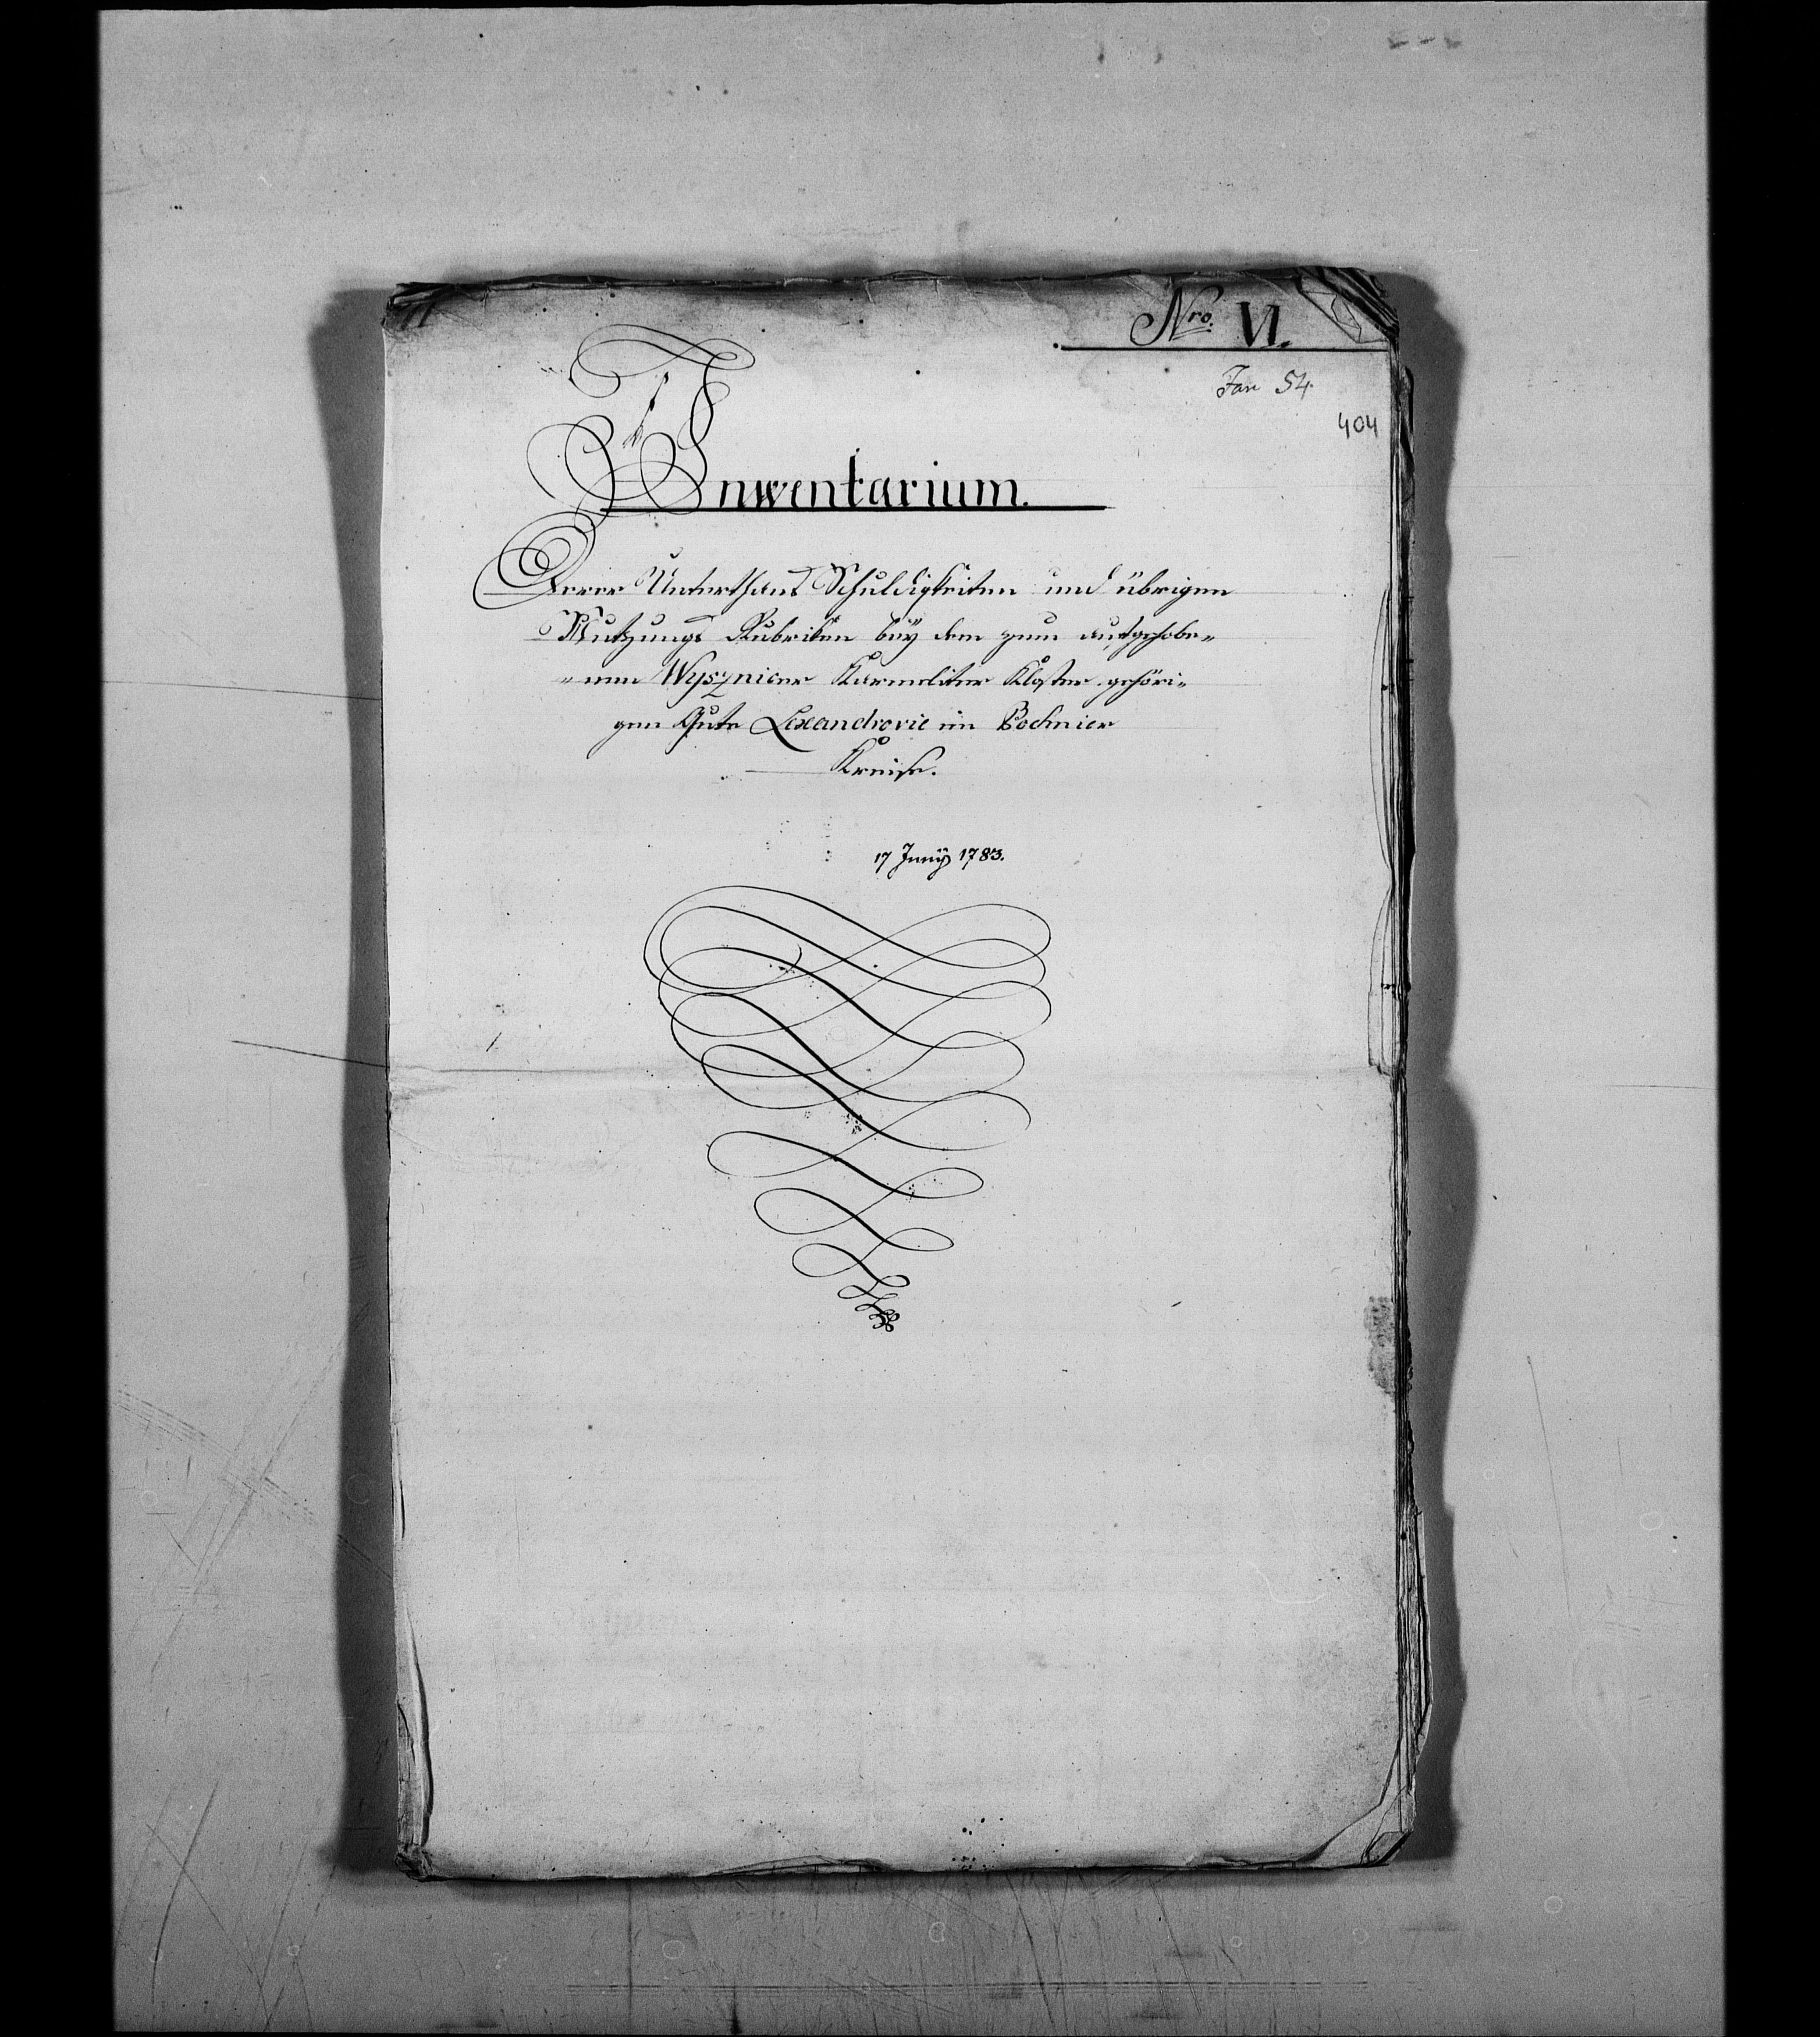 Nro. VI.
Fax 54.
404
Inwentarium.
Derer Unterthans Schuldigkeiten und übrigen
Nutzungs Rubriken beÿ dem zum aufgehobe„
„nen Wysznicer Karmeliter Kloster gehöri„
gen Gute Lexandrovic im Bochnier
Kreise.
17 Junÿ 1783.